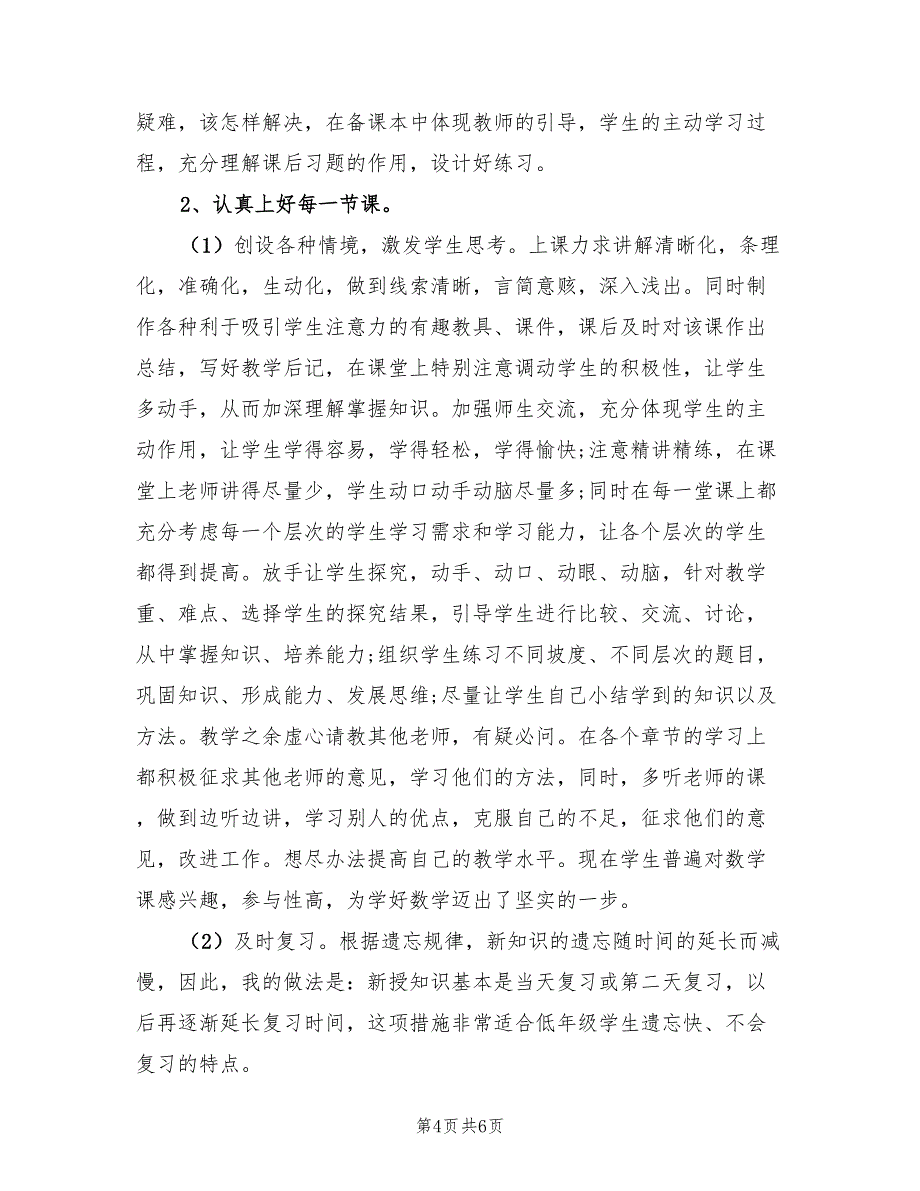 疑难，该怎样解决，在备课本中体现教师的引导，学生的主动学习过
程，充分理解课后习题的作用，设计好练习。
2、认真上好每一节课。
（1）创设各种情境，激发学生思考。上课力求讲解清晰化，条理
化，准确化，生动化，做到线索清晰，言简意赅，深入浅出。同时制
作各种利于吸引学生注意力的有趣教具、课件，课后及时对该课作出
总结，写好教学后记，在课堂上特别注意调动学生的积极性，让学生
多动手，从而加深理解掌握知识。加强师生交流，充分体现学生的主
动作用，让学生学得容易，学得轻松，学得愉快;注意精讲精练，在课
堂上老师讲得尽量少，学生动口动手动脑尽量多;同时在每一堂课上都
充分考虑每一个层次的学生学习需求和学习能力，让各个层次的学生
都得到提高。放手让学生探究，动手、动口、动眼、动脑，针对教学
重、难点、选择学生的探究结果，引导学生进行比较、交流、讨论，
从中掌握知识、培养能力;组织学生练习不同坡度、不同层次的题目，
巩固知识、形成能力、发展思维;尽量让学生自己小结学到的知识以及
方法。教学之余虚心请教其他老师，有疑必问。在各个章节的学习上
都积极征求其他老师的意见，学习他们的方法，同时，多听老师的课
，做到边听边讲，学习别人的优点，克服自己的不足，征求他们的意
见，改进工作。想尽办法提高自己的教学水平。现在学生普遍对数学
课感兴趣，参与性高，为学好数学迈出了坚实的一步。
（2）及时复习。根据遗忘规律，新知识的遗忘随时间的延长而减
慢，因此，我的做法是：新授知识基本是当天复习或第二天复习，以
后再逐渐延长复习时间，这项措施非常适合低年级学生遗忘快、不会
复习的特点。
第4页共6页